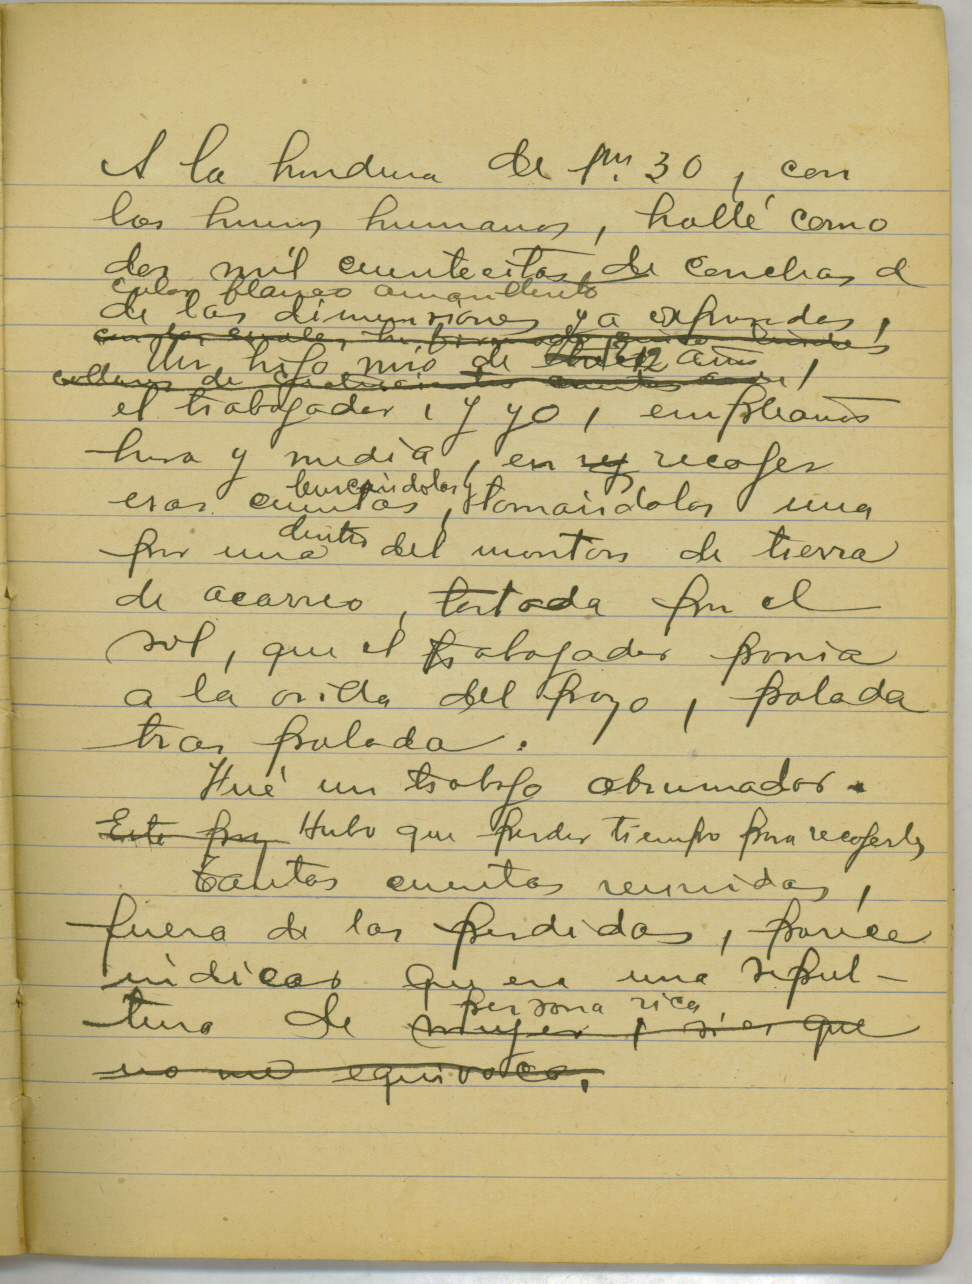 A la hundura de 1m. 30, con
los huesos humanos, hallé como
dos mil cuentecitas de conchas d
color blanco amarillento
de las dimensiones ya expresadas,
Un hijo mio de 12 años,
collares de cuatrocientas cuentas
el trabajador, y yo, empleamos
hora y media, en recoger
buscándolas y
esas cuentas, tomándolas una
dentro
por una del monton de tierra
de acarreo, tostada por el
sol, que el trabajador ponia
a la orilla del pozo, palada
tras palada.
Fué un trabajo abrumador.
Esto Hubo que perder tiempo para recogerlas
Tantas cuentas reunidas,
fuera de las perdidas, parece
indicar que era una sepul-
persona rica
tura de mujer, si es que
no me equivoco.